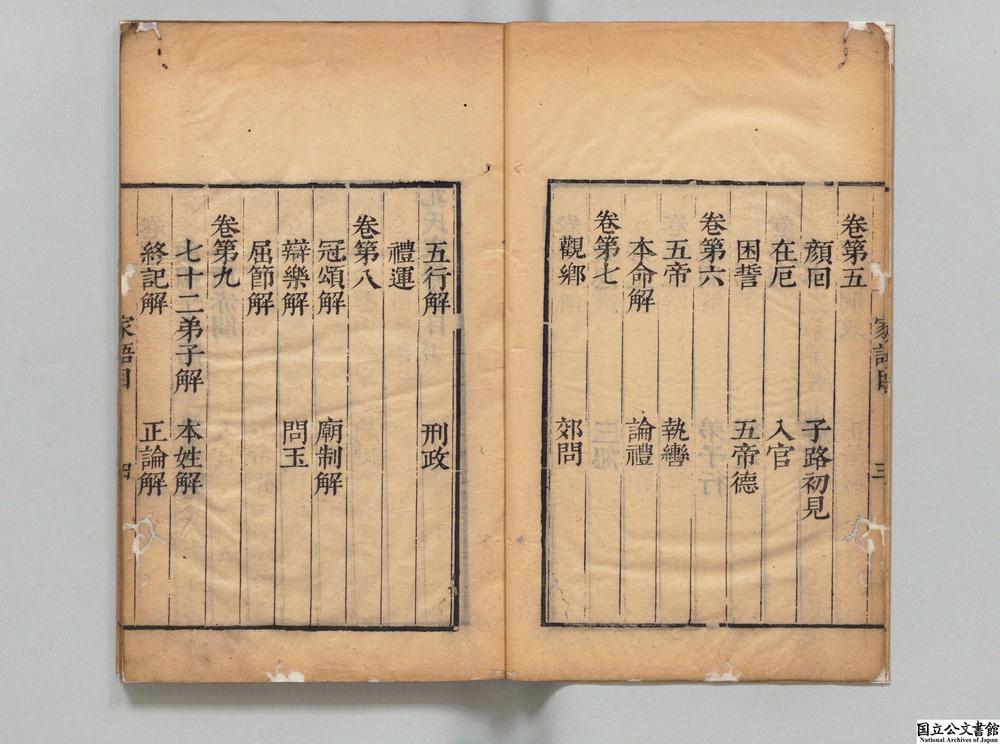 卷第五
顔囘 子路初見
在厄 入官
困誓 五帝德
卷第六
五帝 執轡
本命解 論禮
卷第七
觀鄉 郊問
家語目 三
五行解 刑政
禮運
卷第八
冠頌解 廟制解
辯樂解 問玉
屈節解
卷第九
七十二弟子解 本姓解
終記解 正論解
家語目 四
国立公文書館
National Archives of Japan